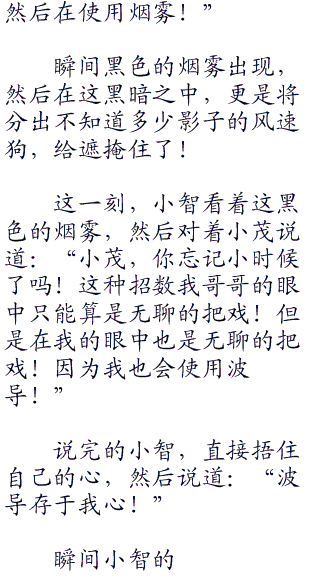 然后在使用烟雾！”
瞬间黑色的烟雾出现，
然后在这黑暗之中，更是将
分出不知道多少影子的风速
狗，给遮掩住了！
这一刻，小智看着这黑
色的烟雾，然后对着小茂说
道：“小茂，你忘记小时候
了吗！这种招数我哥哥的眼
中只能算是无聊的把戏！但
是在我的眼中也是无聊的把
戏！因为我也会使用波
导！”
说完的小智，直接捂住
自己的心，然后说道：“波
导存于我心！”
瞬间小智的